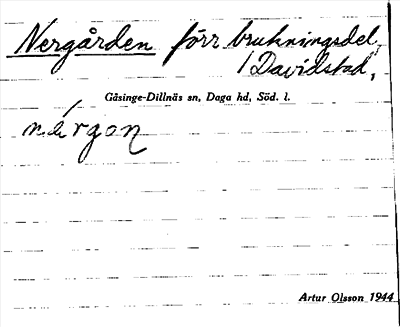 Nergården förr brukningsdel,
i Davidstad,
Gåsinge-Dillnäs sn, Daga hd, Söd. l.
nèrgon
Artur Olsson 1944